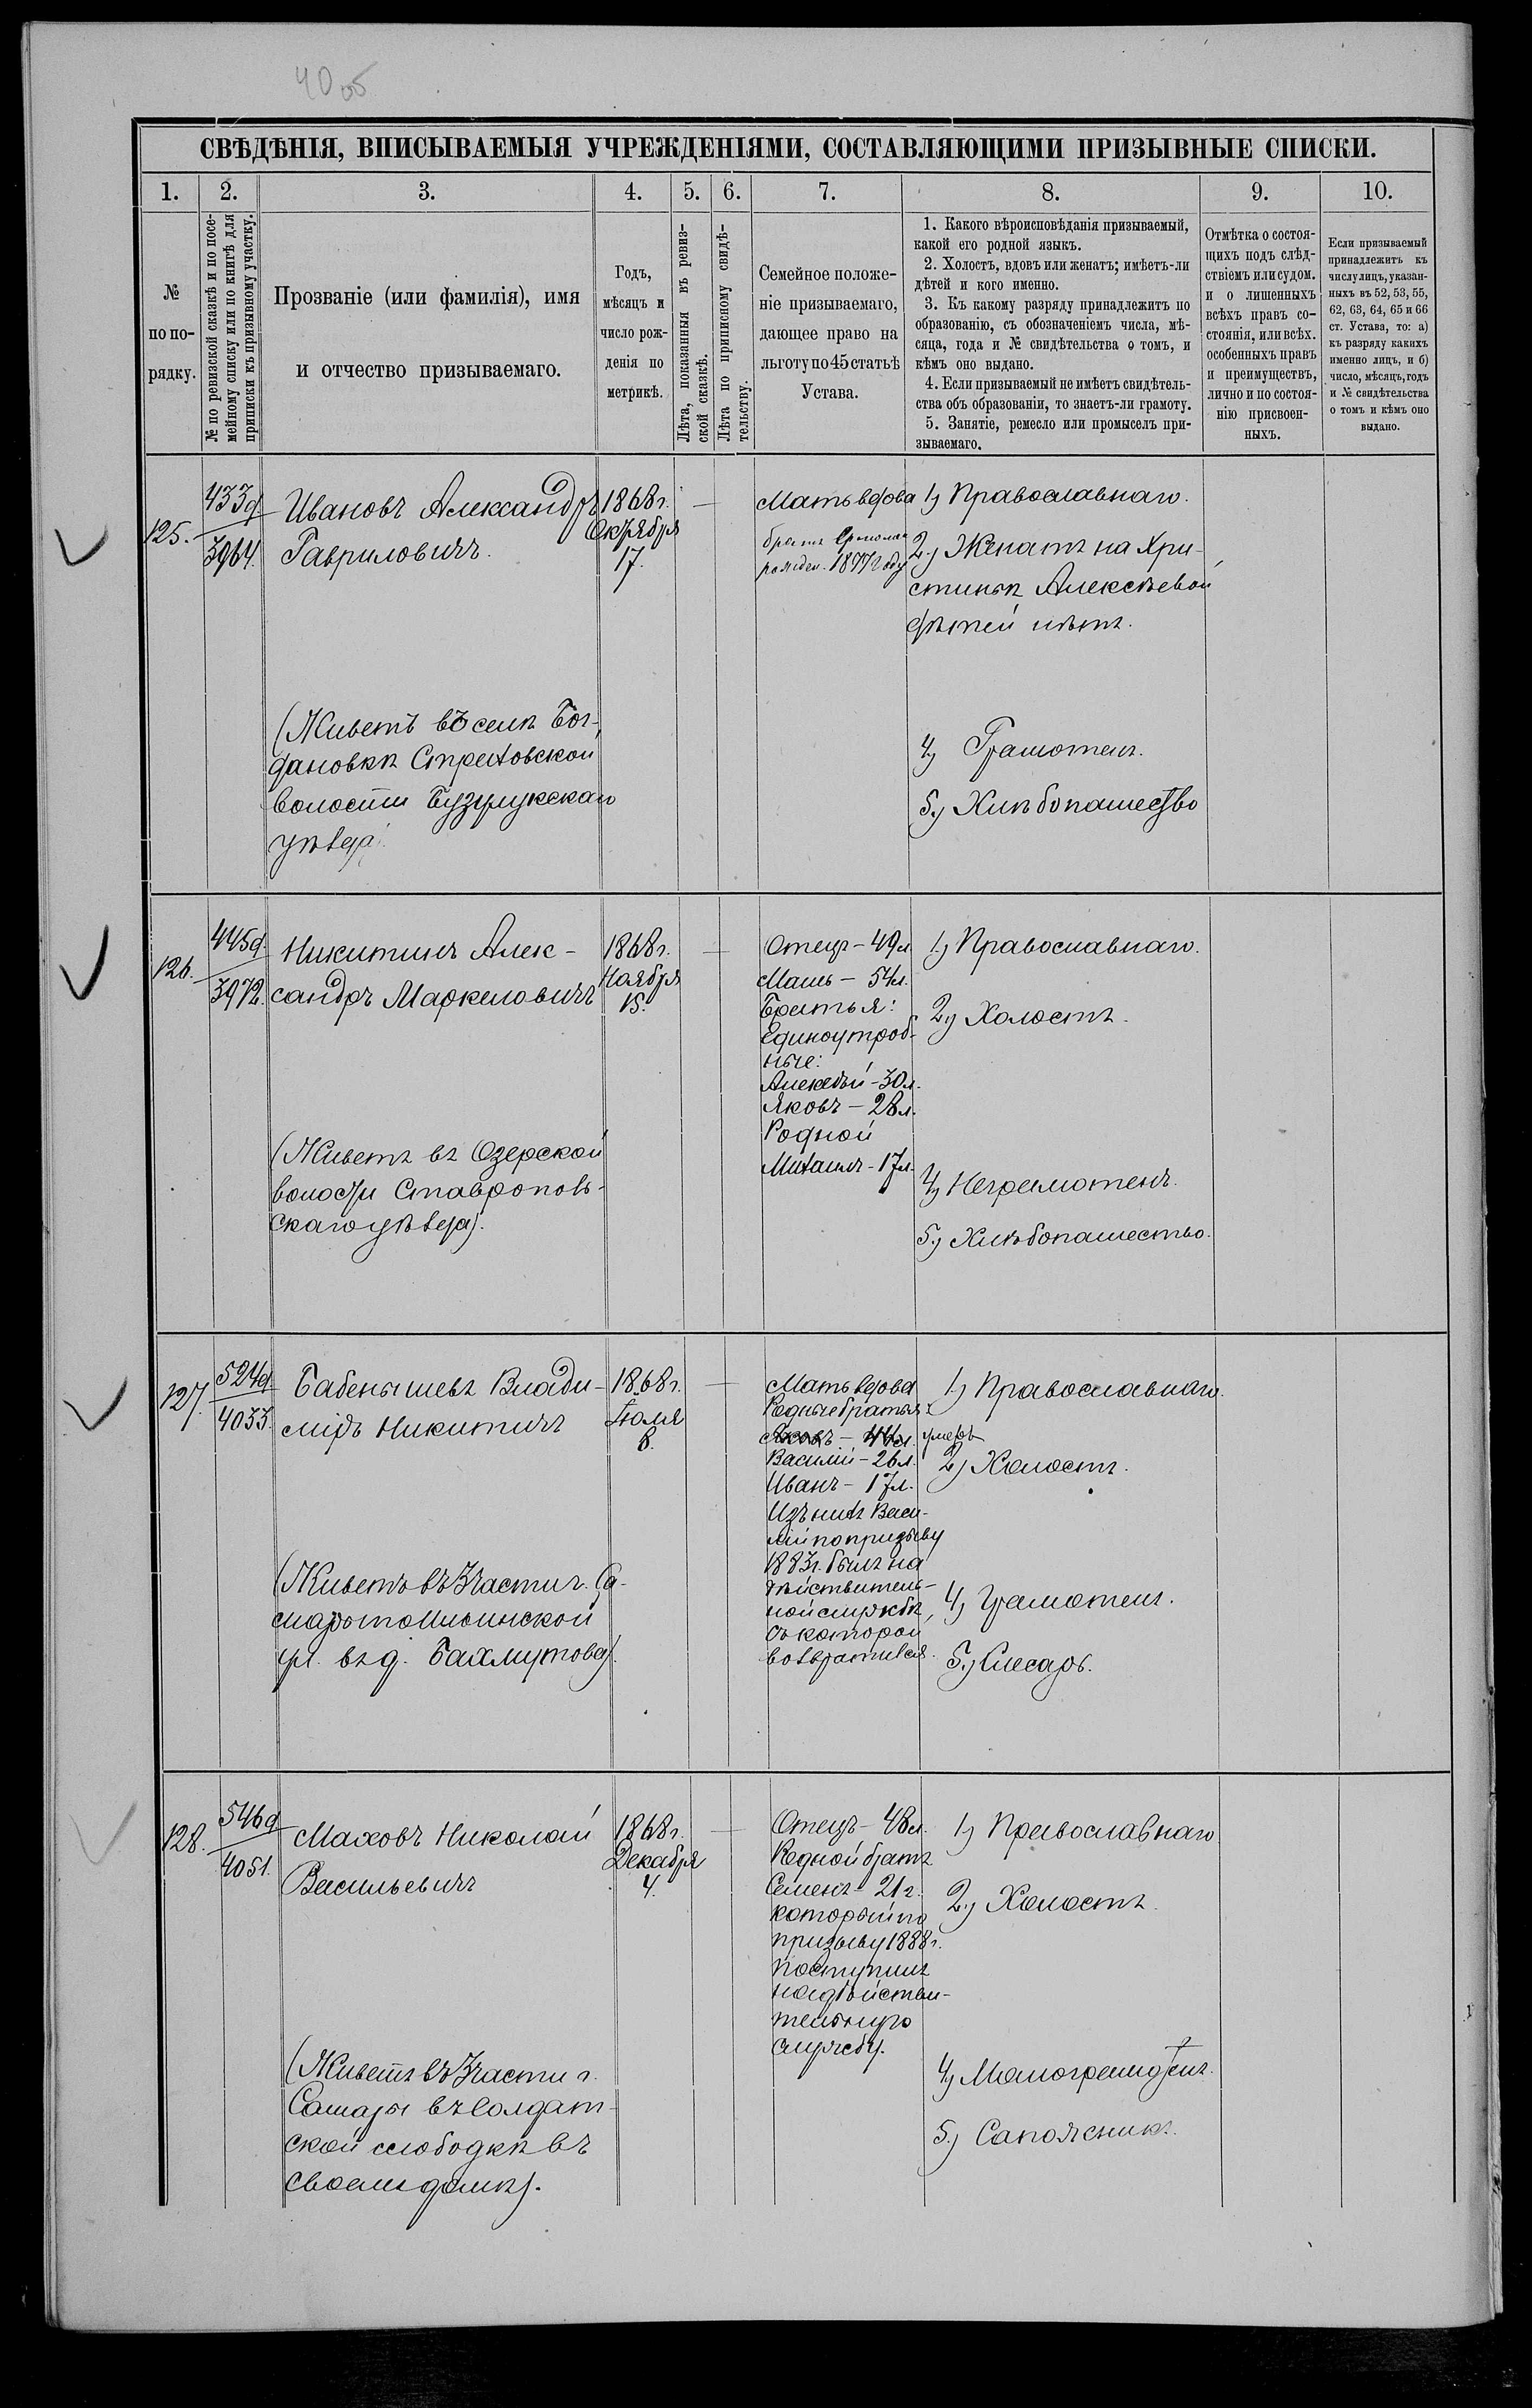 40об
СВѢДѢНІЯ, ВПИСЫВАЕМЫЯ УЧРЕЖДЕНІЯМИ, СОСТАВЛЯЮЩИМИ ПРИЗЫВНЫЕ СПИСКИ.
1. 2. 3. 4. 5. 6. 7. 8. 9. 10.
№
по по-
рядку.
№ по ревизской сказкѣ и по посе-
мейному списку или по книгѣ для
приписки къ призывному участку.
Прозваніе (или фамилія), имя
и отчество призываемаго.
Годъ,
мѣсяцъ и
число рож-
денія по
метрикѣ.
Лѣта, показанныя въ ревиз-
ской сказкѣ.
Лѣта по приписному свидѣ-
тельству.
Семейное положе-
ніе призываемаго,
дающее право на
льготу по 45 статьѣ
Устава.
1. Какого вѣроисповѣданія призываемый,
какой его родной языкъ.
2. Холостъ, вдовъ или женатъ; имѣетъ-ли
дѣтей и кого именно.
3. Къ какому разряду принадлежитъ по
образованію, съ обозначеніемъ числа, мѣ-
сяца, года и № свидѣтельства о томъ, и
кѣмъ оно выдано.
4. Если призываемый не имѣетъ свидѣтель-
ства объ образованіи, то знаетъ-ли грамоту.
5. Занятіе, ремесло или промыселъ при-
зываемаго.
Отмѣтка о состоя-
щихъ подъ слѣд-
ствіемъ или судом.
и о лишенныхъ
всѣхъ правъ со-
стоянія, или всѣх.
особенныхъ правъ
и преимуществъ,
лично и по состоя-
нію присвоен-
ныхъ.
Если призываемый
принадлежитъ къ
числу лицъ, указан-
ныхъ въ 52, 53, 55,
62, 63, 64, 65 и 66
ст. Устава, то: а)
къ разряду какихъ
именно лицъ, и б)
число, мѣсяцъ, годъ
и № свидѣтельства
о томъ и кѣмъ оно
выдано.
125.
433д
3964.
Ивановъ Александръ
Гавриловичъ.
(Живетъ въ селѣ Бог-
дановкѣ Стреховской
волости Бузулукскаго
уѣзда.
1868г.
Октября
17.
Мать вдова
братъ Ермолай
рожден. 1877 году
1) Православнаго.
2.) Женатъ на Хри-
стинѣ Алексѣевой
дѣтей нѣтъ.
4) Грамотенъ.
5.) Хлѣбопашество
126.
445д.
3972.
Никитинъ Алек-
сандръ Маркеловичъ
(Живетъ въ Озерской
волости Ставрополь-
скаго уѣзда).
1868г.
Ноября
15.
Отецъ - 49л
Мать - 54л.
Братья:
Единоутроб-
ные:
Алексѣй - 30л.
Яковъ - 28л.
Родной
Михаилъ - 17л.
1) Православнаго.
2) Холостъ.
4) Неграмотенъ.
5.) Хлѣбопашество.
127.
524д.
4033.
Бабенышевъ Влади-
міръ Никитичъ
(Живетъ въ 3 части г. Са-
мары по Ильинской
ул. въ д. Бахмутова).
1868г.
Іюля
8.
Мать вдова
Родные братья:
Яковъ - 44л. умеръ
Василій - 26л.
Иванъ - 17л.
Изъ нихъ Васи-
лій по призыву
1883г. былъ на
дѣйствитель-
ной службѣ,
съ которой
возвратился.
1) Православнаго.
2) Холостъ.
4) Грамотенъ.
5.) Слесарь.
128.
546д
4051.
Маховъ Николай
Васильевичъ
(Живетъ въ 3 части г.
Самары въ Солдат-
ской слободкѣ въ
своемъ домѣ).
1868г.
Декабря
4.
Отецъ - 48л.
Родной братъ
Семенъ - 21г.
который по
призыву 1888г.
поступилъ
на дѣйстви-
тельную
службу.
1) Православнаго
2.) Холостъ.
4) Малограмотенъ.
5.) Сапожникъ.